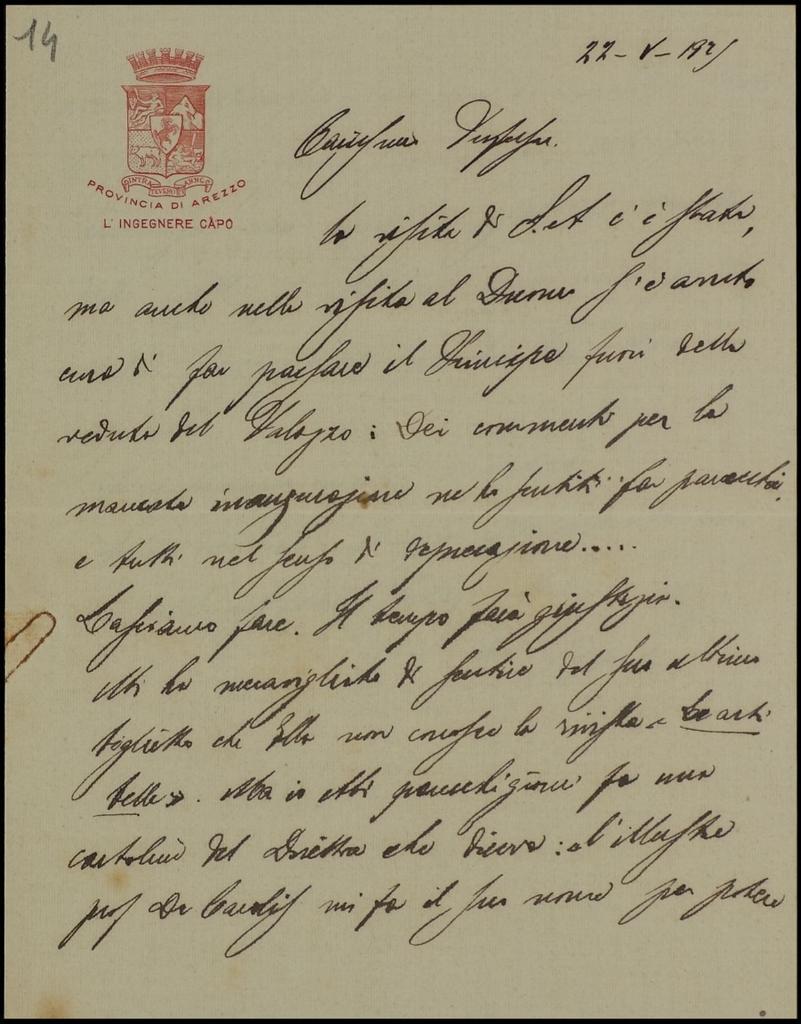 14
22-V-192
INTRA TEVERIM ARNO
PROVINCIA DI AREZZO
L'INGEGNERE CAPO
Carissimo Professore.
la visita di S. A. c'è stata,
ma anche nella visita al Duomo s'è avuto
cura di far passare il Principe fuori della
veduta del Palazzo: Dei commenti per la
mancata inaugurazione ne ho sentiti far parecchi,
e tutti nel senso di deprecazione.....
Lasciamo fare. Il tempo farà giustizia.
Mi ha meravigliato di sentire dal suo ultimo
biglietto che Ella non conosce la rivista "Le arti
belle". Ma io ebbi parecchi giorni fa una
cartolina del Direttore che diceva: "l'illustre
prof De Carolis mi fa il suo nome per potere